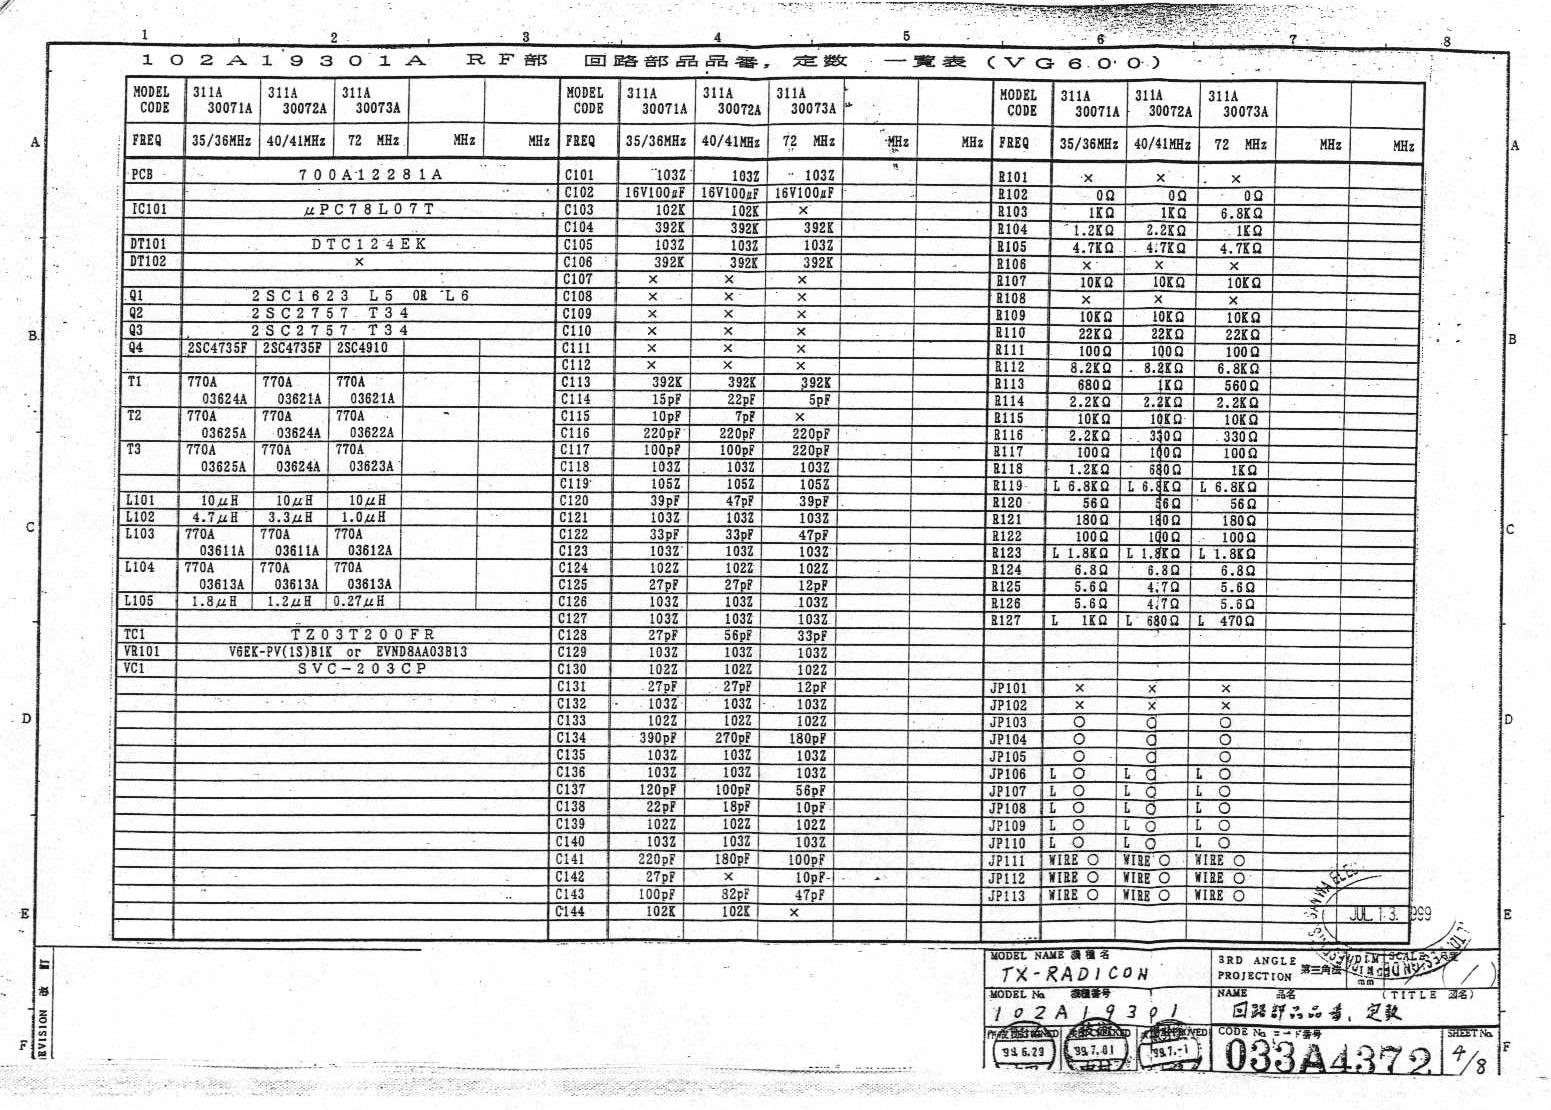 1 2 3 4 5 6 7 8
102A19301A RF部 回路部品品番,定数 一覧表(VG600)
MODEL CODE 311A 30071A 311A 30072A 311A 30073A
FREQ 35/36MHz 40/41MHz 72 MHz MHz MHz
PCB 700A12281A
IC101 μPC78L07T
DT101 DTC124EK
DT102 ×
Q1 2SC1623 L5 OR L6
Q2 2SC2757 T34
Q3 2SC2757 T34
Q4 2SC4735F 2SC4735F 2SC4910
T1 770A 03624A 770A 03621A 770A 03621A
T2 770A 03625A 770A 03624A 770A 03622A
T3 770A 03625A 770A 03624A 770A 03623A
L101 10μH 10μH 10μH
L102 4.7μH 3.3μH 1.0μH
L103 770A 03611A 770A 03611A 770A 03612A
L104 770A 03613A 770A 03613A 770A 03613A
L105 1.8μH 1.2μH 0.27μH
TC1 TZ03T200FR
VR101 V6EK-PV(1S)B1K or EVND8AA03B13
VC1 SVC-203CP
MODEL CODE 311A 30071A 311A 30072A 311A 30073A
FREQ 35/36MHz 40/41MHz 72 MHz MHz MHz
C101 103Z 103Z 103Z
C102 16V100μF 16V100μF 16V100μF
C103 102K 102K ×
C104 392K 392K 392K
C105 103Z 103Z 103Z
C106 392K 392K 392K
C107 × × ×
C108 × × ×
C109 × × ×
C110 × × ×
C111 × × ×
C112 × × ×
C113 392K 392K 392K
C114 15pF 22pF 5pF
C115 10pF 7pF ×
C116 220pF 220pF 220pF
C117 100pF 100pF 220pF
C118 103Z 103Z 103Z
C119 105Z 105Z 105Z
C120 39pF 47pF 39pF
C121 103Z 103Z 103Z
C122 33pF 33pF 47pF
C123 103Z 103Z 103Z
C124 102Z 102Z 102Z
C125 27pF 27pF 12pF
C126 103Z 103Z 103Z
C127 103Z 103Z 103Z
C128 27pF 56pF 33pF
C129 103Z 103Z 103Z
C130 102Z 102Z 102Z
C131 27pF 27pF 12pF
C132 103Z 103Z 103Z
C133 102Z 102Z 102Z
C134 390pF 270pF 180pF
C135 103Z 103Z 103Z
C136 103Z 103Z 103Z
C137 120pF 100pF 56pF
C138 22pF 18pF 10pF
C139 102Z 102Z 102Z
C140 103Z 103Z 103Z
C141 220pF 180pF 100pF
C142 27pF × 10pF
C143 100pF 82pF 47pF
C144 102K 102K ×
MODEL CODE 311A 30071A 311A 30072A 311A 30073A
FREQ 35/36MHz 40/41MHz 72 MHz MHz MHz
R101 × × ×
R102 0Ω 0Ω 0Ω
R103 1KΩ 1KΩ 6.8KΩ
R104 1.2KΩ 2.2KΩ 1KΩ
R105 4.7KΩ 4.7KΩ 4.7KΩ
R106 × × ×
R107 10KΩ 10KΩ 10KΩ
R108 × × ×
R109 10KΩ 10KΩ 10KΩ
R110 22KΩ 22KΩ 22KΩ
R111 100Ω 100Ω 100Ω
R112 8.2KΩ 8.2KΩ 6.8KΩ
R113 680Ω 1KΩ 560Ω
R114 2.2KΩ 2.2KΩ 2.2KΩ
R115 10KΩ 10KΩ 10KΩ
R116 2.2KΩ 330Ω 330Ω
R117 100Ω 100Ω 100Ω
R118 1.2KΩ 680Ω 1KΩ
R119 L 6.8KΩ L 6.8KΩ L 6.8KΩ
R120 56Ω 56Ω 56Ω
R121 180Ω 180Ω 180Ω
R122 100Ω 100Ω 100Ω
R123 L 1.8KΩ L 1.8KΩ L 1.8KΩ
R124 6.8Ω 6.8Ω 6.8Ω
R125 5.6Ω 4.7Ω 5.6Ω
R126 5.6Ω 4.7Ω 5.6Ω
R127 L 1KΩ L 680Ω L 470Ω
JP101 × × ×
JP102 × × ×
JP103 ○ ○ ○
JP104 ○ ○ ○
JP105 ○ ○ ○
JP106 L ○ L ○ L ○
JP107 L ○ L ○ L ○
JP108 L ○ L ○ L ○
JP109 L ○ L ○ L ○
JP110 L ○ L ○ L ○
JP111 WIRE ○ WIRE ○ WIRE ○
JP112 WIRE ○ WIRE ○ WIRE ○
JP113 WIRE ○ WIRE ○ WIRE ○
A A
B B
C C
D D
E E
F F
JUL 13. 1999
REVISION 改訂
MODEL NAME 機種名
TX-RADICON
3RD ANGLE PROJECTION 第三角法
mm
SCALE
MODEL No. 機種番号
102A19301
NAME 品名 (TITLE 図名)
回路部品品番、定数
'99.6.29
'99.7.01
'99.7.-1
CODE No. コード番号
033A4372
SHEET No.
4/8